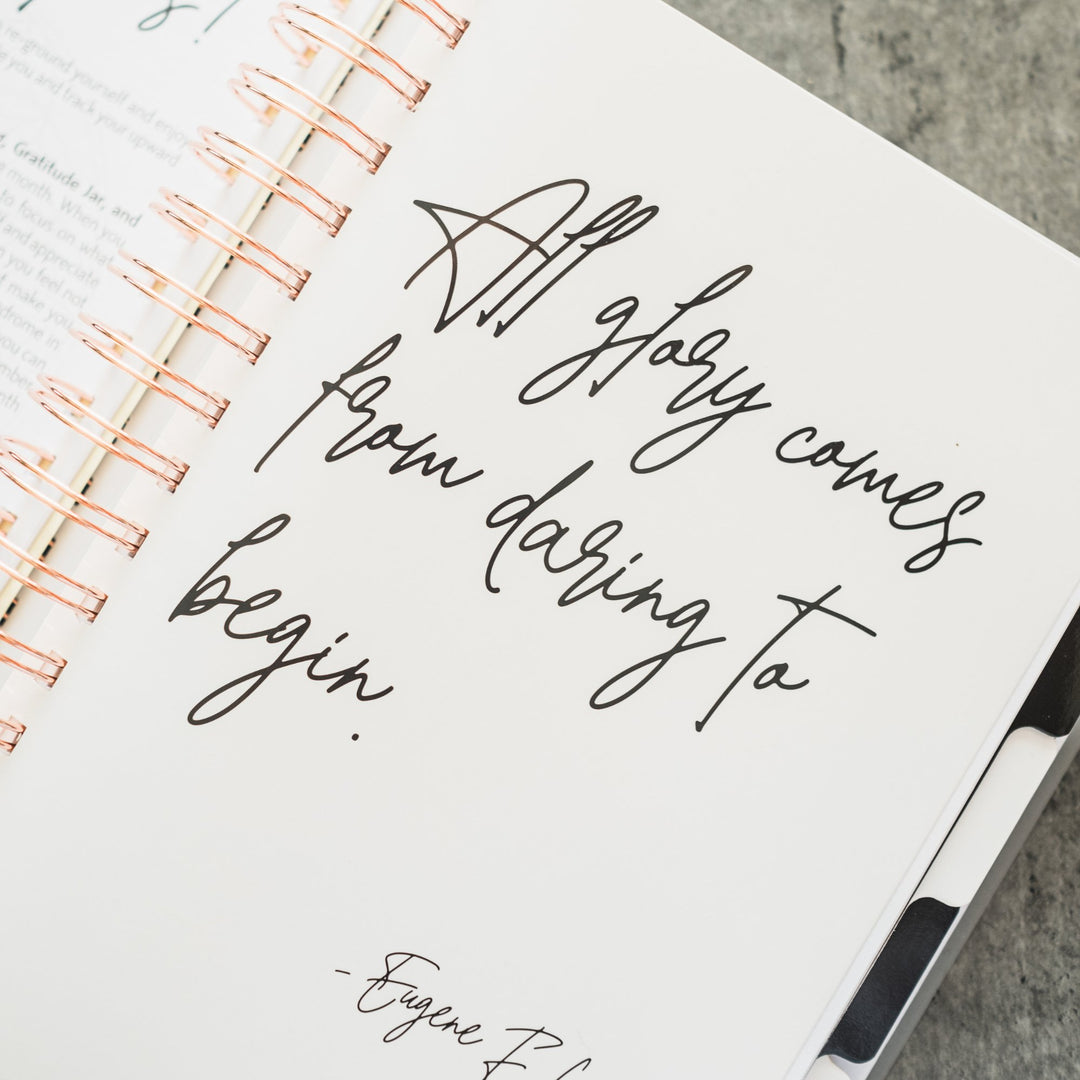 re-ground yourself and enjoy
you and track your upward
Gratitude Jar, and
month. When you
to focus on what
and appreciate
you feel not
make you
drome in
you can
All glory comes
from daring to
begin.
- Eugene F.